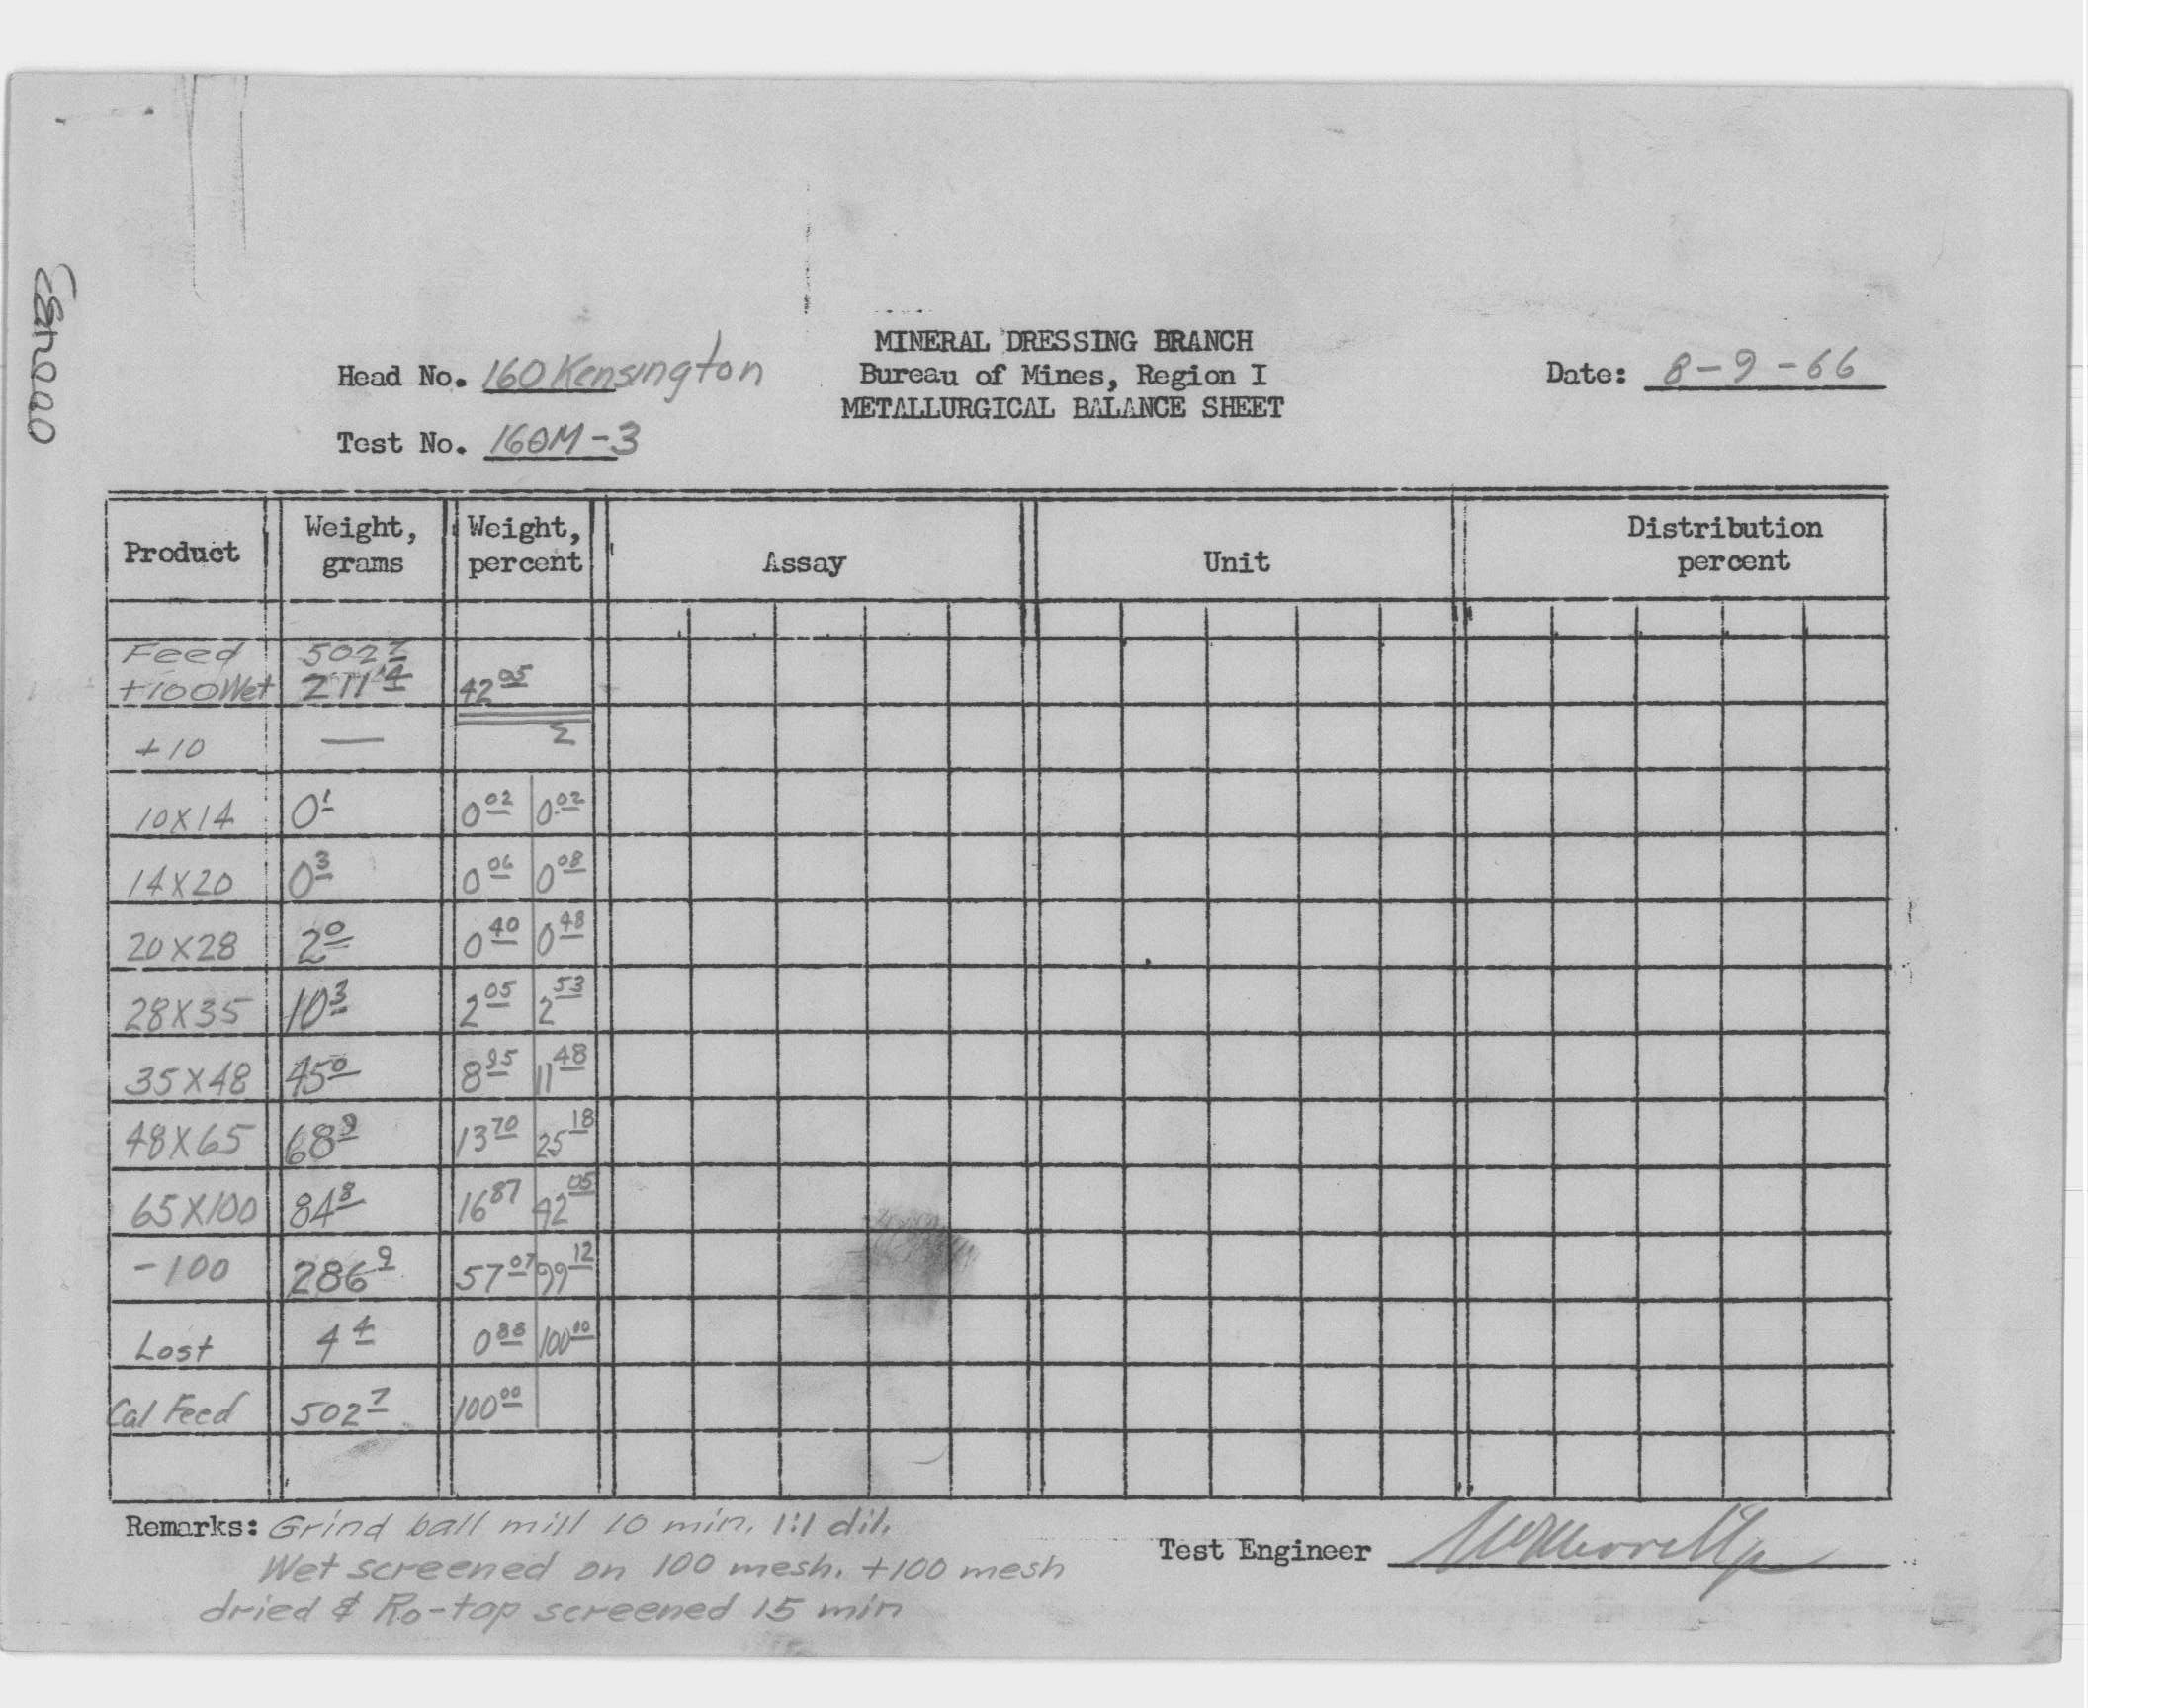 MINERAL DRESSING BRANCH
Head No. 160 Kensington Bureau of Mines, Region I Date: 8-9-66
METALLURGICAL BALANCE SHEET
Test No. 160M-3
Product Weight, grams Weight, percent Assay Unit Distribution percent
Feed 502⁷
+100 Wet 211⁴ 42⁰⁵
+10 — Σ
10X14 0¹ 0⁰² 0⁰²
14X20 0³ 0⁰⁶ 0⁰⁸
20X28 2⁰ 0⁴⁰ 0⁴⁸
28X35 10³ 2⁰⁵ 2⁵³
35X48 45⁰ 8⁹⁵ 11⁴⁸
48X65 68⁹ 13⁷⁰ 25¹⁸
65X100 84⁸ 16⁸⁷ 42⁰⁵
-100 286⁹ 57⁰⁷ 99¹²
Lost 4⁴ 0⁸⁸ 100⁰⁰
Cal Feed 502⁷ 100⁰⁰
Remarks: Grind ball mill 10 min. 1:1 dil.
Wet screened on 100 mesh. +100 mesh
dried & Ro-tap screened 15 min
Test Engineer